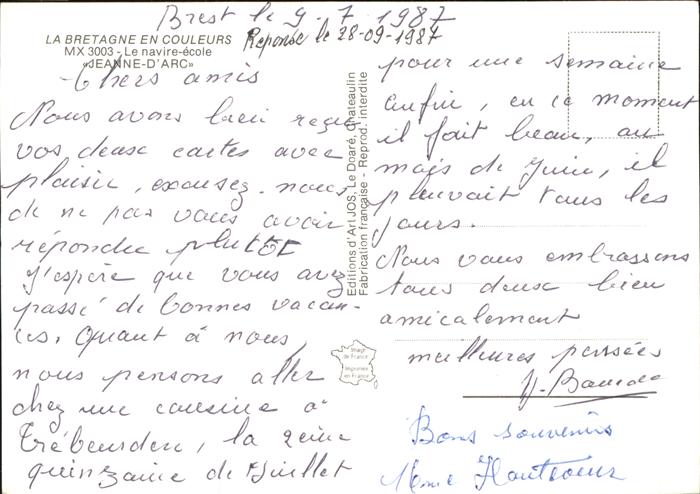 Brest le 9-7-1987
Reponse le 28-09-1987
LA BRETAGNE EN COULEURS
MX 3003 - Le navire-école
«JEANNE-D'ARC»
Chers amis
Nous avons bien reçu
vos deux cartes avec
plaisir, excusez-nous
de ne pas vous avoir
répondu plutôt
J'espère que vous avez
passé de bonnes vacan-
ces. Quant à nous,
nous pensons aller
chez une cousine à
Trébeurden, la 2eme
quinzaine de Juillet
Editions d'Art JOS, Le Doaré, Chateaulin
Fabrication française - Reprod. interdite
Image de France
Imprimée en France
pour une semaine
enfin, en ce moment
il fait beau, au
mois de Juin, il
pleuvait tous les
jours.
Nous vous embrassons
tous deux bien
amicalement
meilleures pensées
Bons souvenirs
Mme